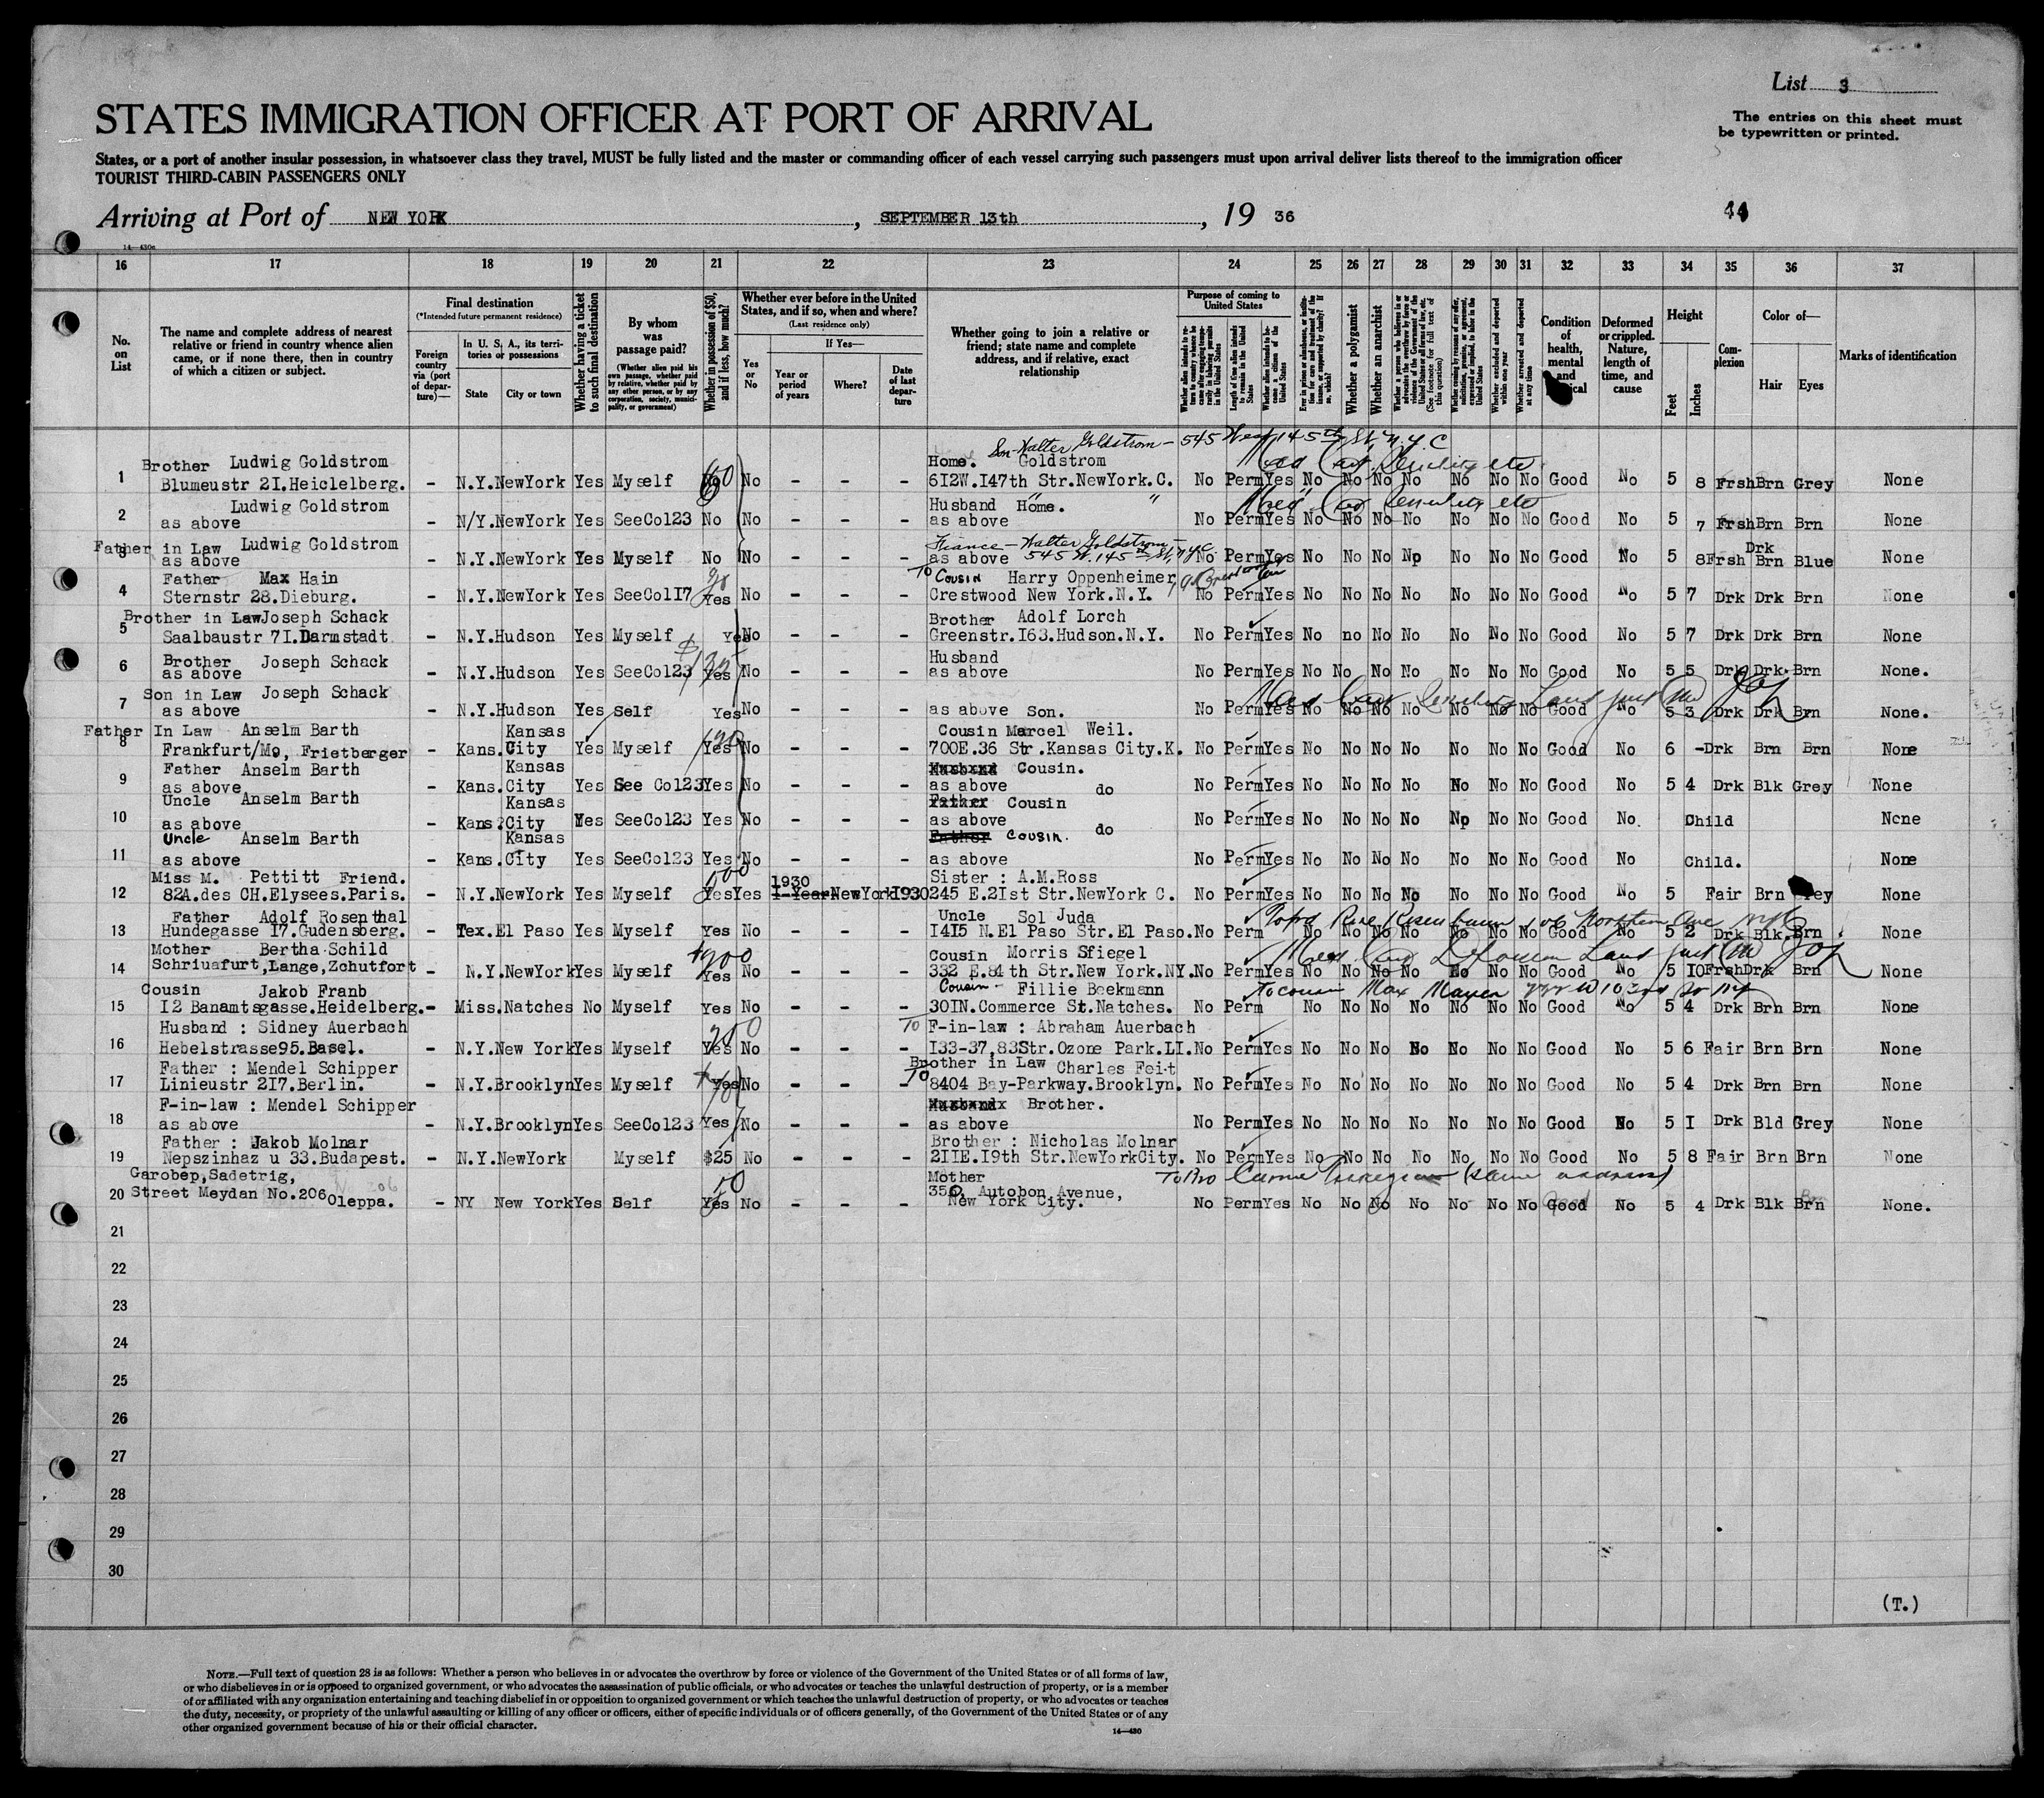 List 3
The entries on this sheet must
be typewritten or printed.
STATES IMMIGRATION OFFICER AT PORT OF ARRIVAL
States, or a port of another insular possession, in whatsoever class they travel, MUST be fully listed and the master or commanding officer of each vessel carrying such passengers must upon arrival deliver lists thereof to the immigration officer
TOURIST THIRD-CABIN PASSENGERS ONLY
Arriving at Port of NEW YORK, SEPTEMBER 13th, 19 36
14—430c
16 17 18 19 20 21 22 23 24 25 26 27 28 29 30 31 32 33 34 35 36 37
No. on List
The name and complete address of nearest relative or friend in country whence alien came, or if none there, then in country of which a citizen or subject.
Final destination
(*Intended future permanent residence)
Foreign country via (port of departure)—
In U. S. A., its territories or possessions
State
City or town
Whether having a ticket to such final destination
By whom was passage paid?
(Whether alien paid his own passage, whether paid by relative, whether paid by any other person, or by any corporation, society, municipality, or government)
Whether in possession of $50, and if less, how much?
Whether ever before in the United States, and if so, when and where?
(Last residence only)
Yes or No
If Yes—
Year or period of years
Where?
Date of last departure
Whether going to join a relative or friend; state name and complete address, and if relative, exact relationship
Purpose of coming to United States
Whether a polygamist
Whether an anarchist
Condition of health, mental and
Deformed or crippled. Nature, length of time, and cause
Height
Feet
Inches
Complexion
Color of—
Hair
Eyes
Marks of identification
Son-Walter Goldstrom - 545 West 145th St, N.Y.C
1 Brother Ludwig Goldstrom Home. Goldstrom
Blumeustr 2I.Heiclelberg. - N.Y.NewYork Yes Myself No - - - 6I2W.I47th Str.NewYork.C. No PermYes No No No No No No No Good No 5 8 FrshBrn Grey None
2 Ludwig Goldstrom Husband Home.
as above - N/Y.NewYork Yes SeeCol23 No No - - - as above No PermYes No No No No No No No Good No 5 7 FrshBrn Brn None
3 Father in Law Ludwig Goldstrom Fiance - Walter Goldstrom -
as above - N.Y.NewYork Yes Myself No No - - - as above 545 W. 145th St, N.Y.C. No PermYes No No No Np No No No Good No 5 8Frsh Drk Brn Blue None
4 Father Max Hain To Cousin Harry Oppenheimer
Sternstr 28.Dieburg. - N.Y.NewYork Yes SeeColI7 Yes No - - - Crestwood New York.N.Y. No PermYes No No No No No No No Good No 5 7 Drk Drk Brn None
5 Brother in Law Joseph Schack Brother Adolf Lorch
Saalbaustr 7I.Darmstadt - N.Y.Hudson Yes Myself Yes No - - - Greenstr.I63.Hudson.N.Y. No PermYes No no No No No No No Good No 5 7 Drk Drk Brn None
6 Brother Joseph Schack Husband
as above - N.Y.Hudson Yes SeeCol23 Yes No - - - as above No PermYes No No No No No No No Good No 5 5 Drk Drk Brn None.
7 Son in Law Joseph Schack
as above - N.Y.Hudson Yes Self Yes No - - - as above Son. No PermYes No No No No No No No Good No 5 3 Drk Drk Brn None.
8 Father In Law Anselm Barth Kansas Cousin Marcel Weil.
Frankfurt/Mo, Frietberger - Kans. City Yes Myself Yes No - - - 700E.36 Str.Kansas City.K. No PermYes No No No No No No No Good No 6 -Drk Brn Brn None
9 Father Anselm Barth Kansas Husband Cousin.
as above - Kans. City Yes See Col23 Yes No - - - as above do No PermYes No No No No No No No Good No 5 4 Drk Blk Grey None
10 Uncle Anselm Barth Kansas Father Cousin
as above - Kans. City Yes SeeCol23 Yes No - - - as above do No PermYes No No No No Np No No Good No Child None
11 Uncle Anselm Barth Kansas Father Cousin.
as above - Kans. City Yes SeeCol23 Yes No - - - as above No PermYes No No No No No No No Good No Child. None
12 Miss M. Pettitt Friend. 1930 Sister : A.M.Ross
82A.des CH.Elysees.Paris. - N.Y.NewYork Yes Myself Yes Yes I-Year NewYork 1930 245 E.2Ist Str.NewYork C. No PermYes No No No No No No No Good No 5 Fair Brn None
13 Father Adolf Rosenthal Uncle Sol Juda
Hundegasse I7.Gudensberg. - Tex.El Paso Yes Myself Yes No - - - I4I5 N.El Paso Str.El Paso. No Perm No No No No No No No Good No 5 2 Drk Blk.Brn None
14 Mother Bertha Schild Cousin Morris Sfiegel
Schriuafurt,Lange,Zchutfort - N.Y.NewYork Yes Myself Yes No - - - 332 E.84th Str.New York.NY. No PermYes No No No No No No No Good No 5 IOFrshDrk Brn None
15 Cousin Jakob Franb Cousin - Fillie Beekmann To cousin Max
I2 Banamtsgasse.Heidelberg. - Miss.Natches No Myself Yes No - - - 30IN.Commerce St.Natches. No Perm No No No No No No No Good No 5 4 Drk Brn Brn None
16 Husband : Sidney Auerbach To F-in-law : Abraham Auerbach
Hebelstrasse95.Basel. - N.Y.New York Yes Myself Yes No - - - I33-37,83Str.Ozone Park.LI. No PermYes No No No No No No No Good No 5 6 Fair Brn Brn None
17 Father : Mendel Schipper To Brother in Law Charles Feit
Linieustr 2I7.Berlin. - N.Y.Brooklyn Yes Myself Yes No - - - 8404 Bay-Parkway.Brooklyn. No PermYes No No No No No No No Good No 5 4 Drk Brn Brn None
18 F-in-law : Mendel Schipper Husband Brother.
as above - N.Y.Brooklyn Yes SeeCol23 Yes No - - - as above No PermYes No No No No No No No Good No 5 I Drk Bld Grey None
19 Father : Jakob Molnar Brother : Nicholas Molnar
Nepszinhaz u 33.Budapest. - N.Y.NewYork Myself $25 No - - - 2IIE.I9th Str.NewYorkCity. No PermYes No No No No No No No Good No 5 8 Fair Brn Brn None
20 Garobep,Sadetrig, Mother To Bro (same address)
Street Meydan No.206 Oleppa. - NY New York Yes Self Yes No - - - 350, Autobon Avenue, New York City. No PermYes No No No No No No No Good No 5 4 Drk Blk Brn None.
21
22
23
24
25
26
27
28
29
30
(T.)
NOTE.—Full text of question 28 is as follows: Whether a person who believes in or advocates the overthrow by force or violence of the Government of the United States or of all forms of law,
or who disbelieves in or is opposed to organized government, or who advocates the assassination of public officials, or who advocates or teaches the unlawful destruction of property, or is a member
of or affiliated with any organization entertaining and teaching disbelief in or opposition to organized government or which teaches the unlawful destruction of property, or who advocates or teaches
the duty, necessity, or propriety of the unlawful assaulting or killing of any officer or officers, either of specific individuals or of officers generally, of the Government of the United States or of any
other organized government because of his or their official character.
14—430